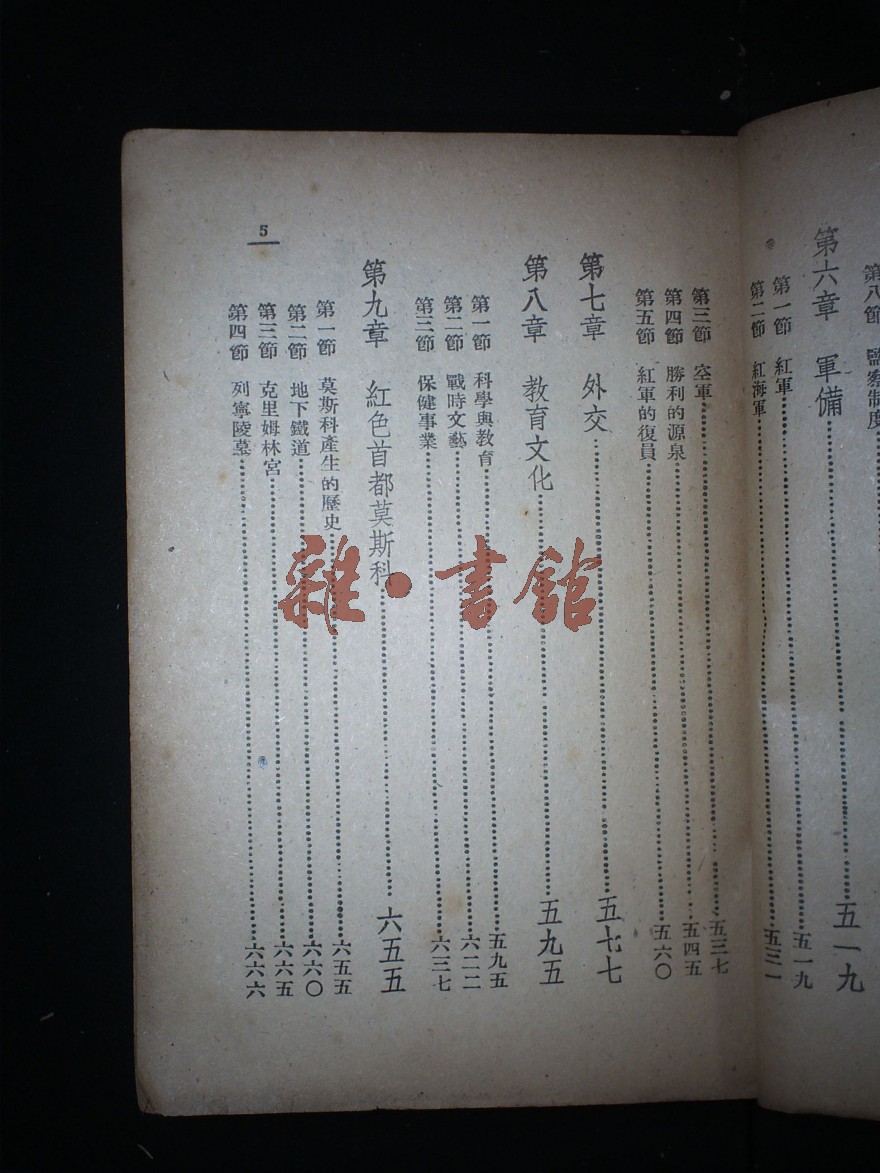 第八節 監察制度
第六章 軍備 五一九
第一節 紅軍 五一九
第二節 紅海軍 五三一
第三節 空軍 五三七
第四節 勝利的源泉 五四五
第五節 紅軍的復員 五六〇
第七章 外交 五七七
第八章 教育文化 五九五
第一節 科學與教育 五九五
第二節 戰時文藝 六二二
第三節 保健事業 六三七
第九章 紅色首都莫斯科 六五五
第一節 莫斯科產生的歷史 六五五
第二節 地下鐵道 六六〇
第三節 克里姆林宮 六六五
第四節 列寧陵墓 六六六
5
雜·書館